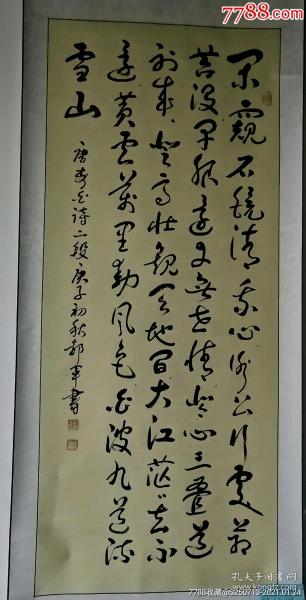 7788.com
閒窺石鏡清我心謝公行處蒼
苔沒早服還丹無世情琴心三疊道
初成登高壯觀天地間大江茫茫去不
還黃雲萬里動風色白波九道流
雪山
唐李白詩二段庚子初秋郭軍書
孔夫子旧书网
7788收藏@S250713-2021.01.24